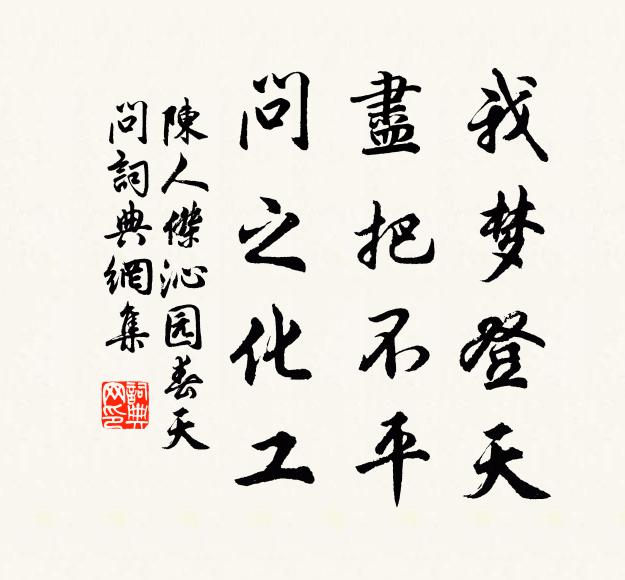 我梦登天
盡把不平
問之化工
陳人傑沁园春天
問詞典網集
詞典網印